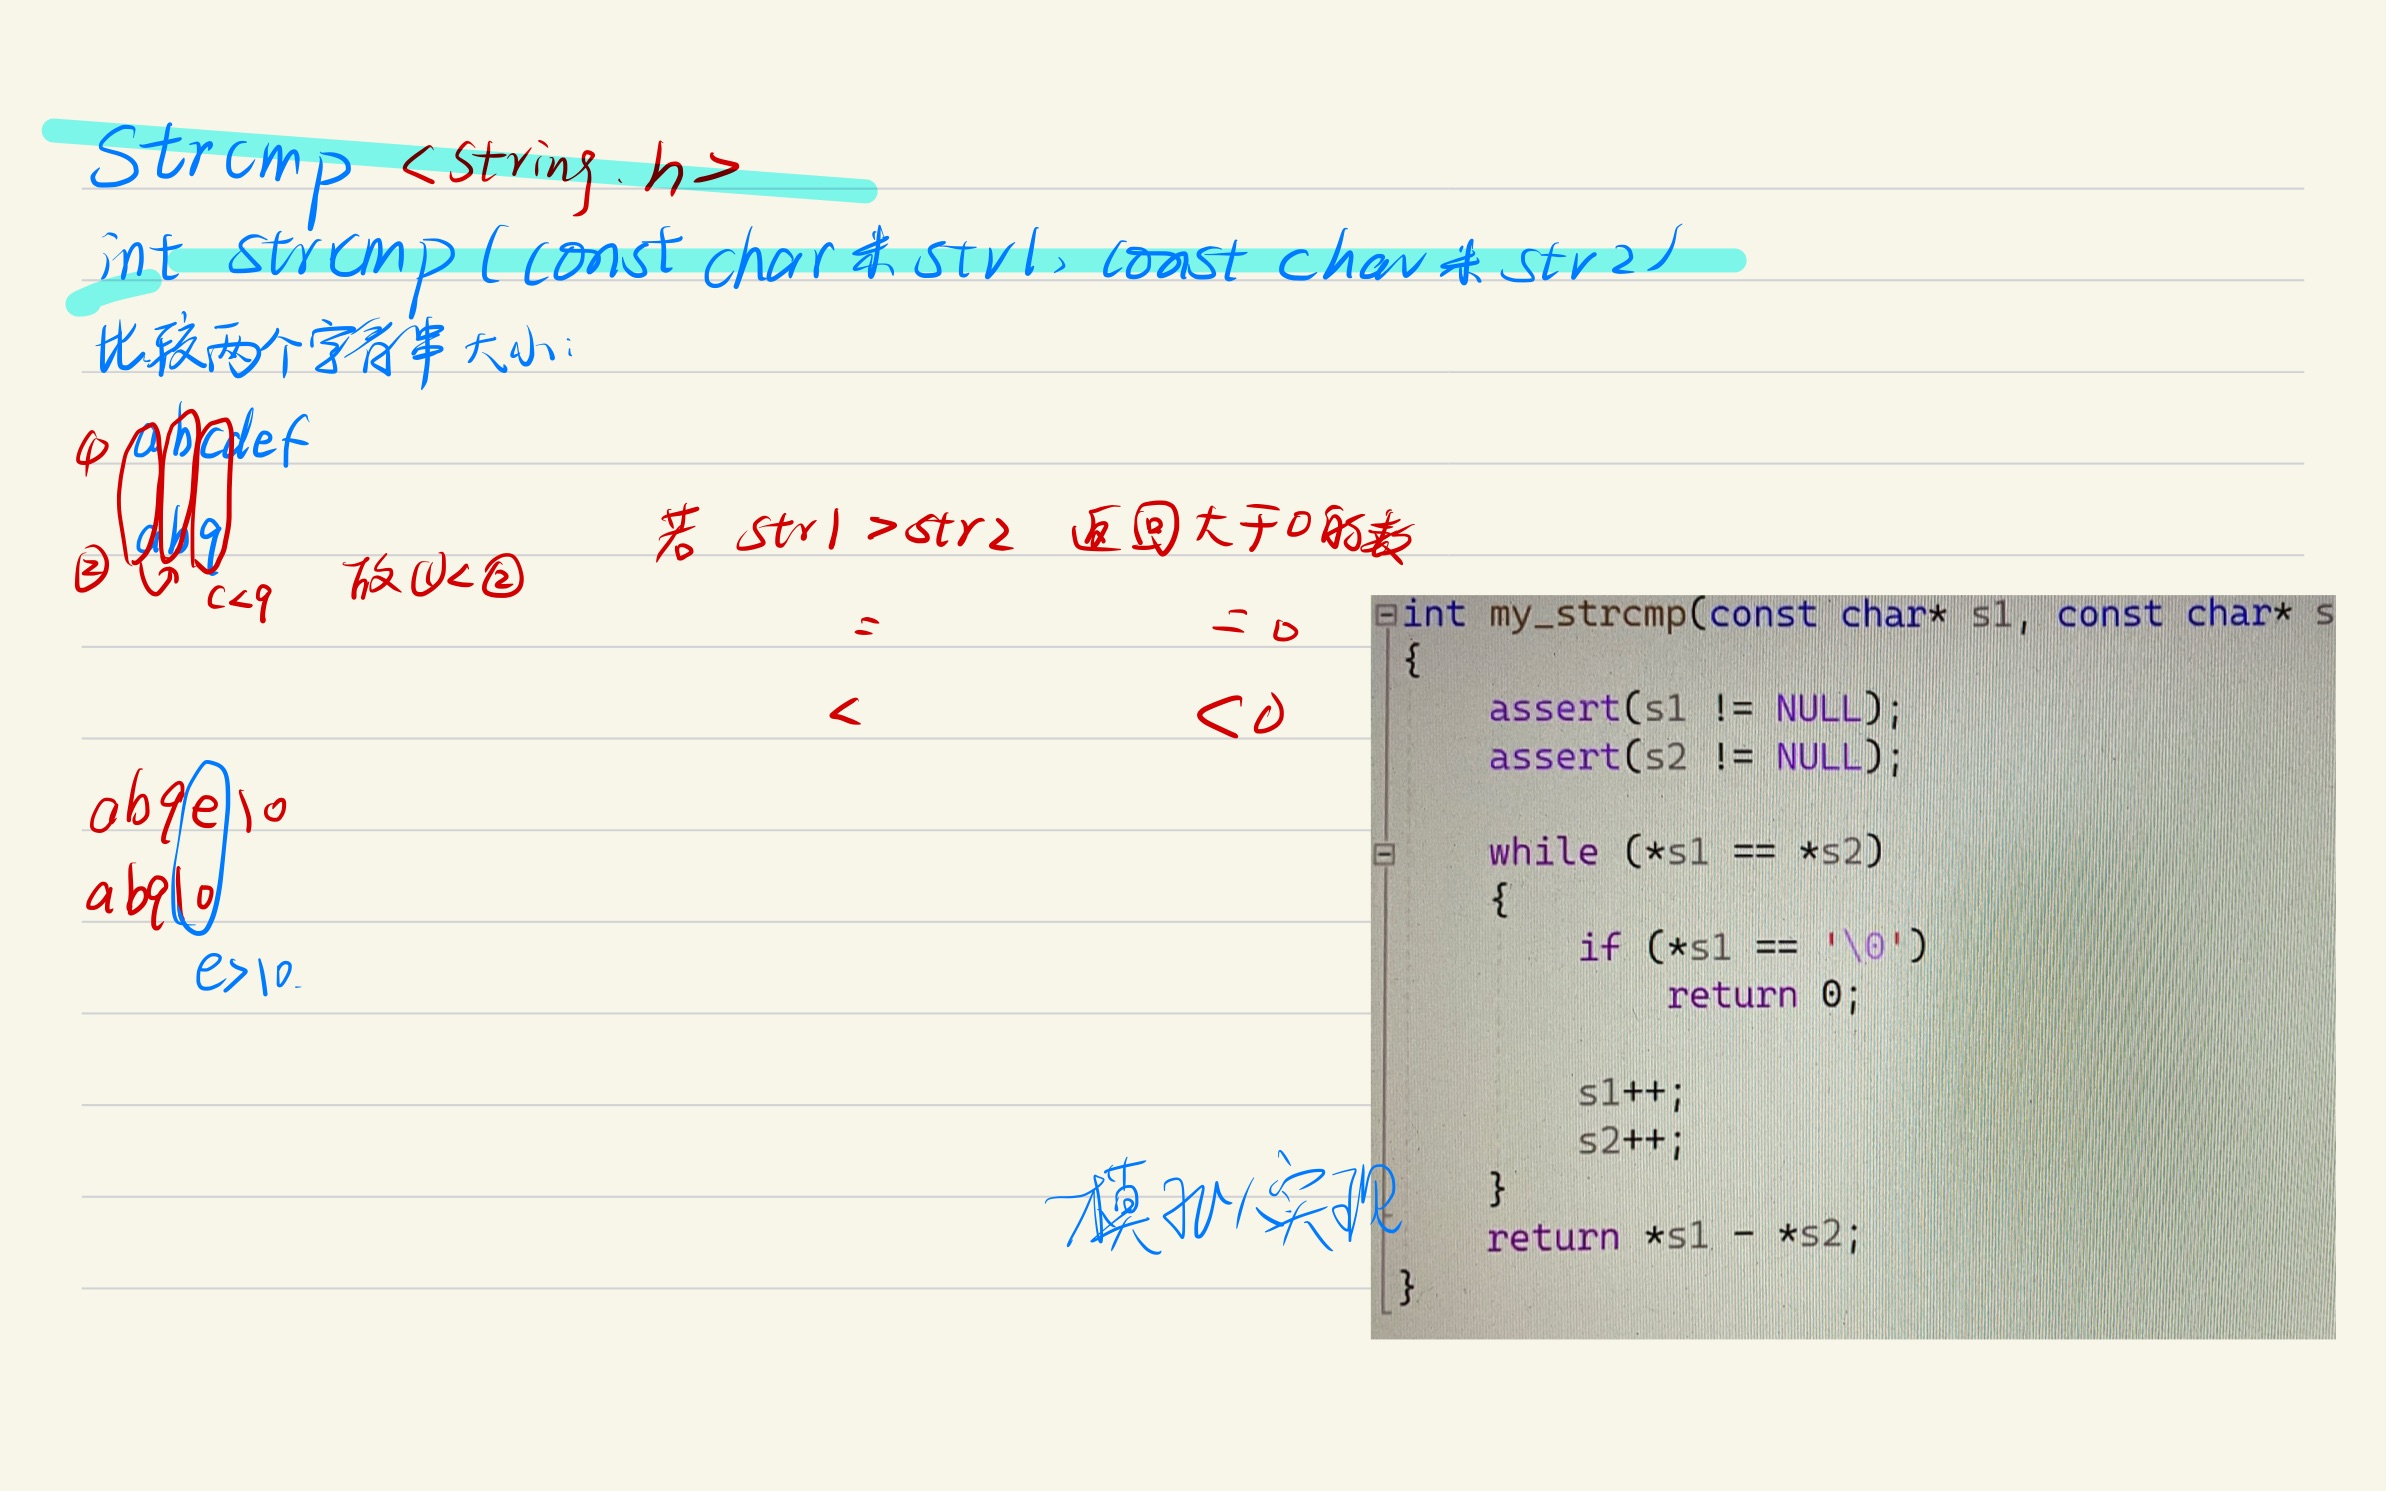 Strcmp <string.h>
int strcmp (const char* str1, const char* str2)
比较两个字符串大小:
① abcdef
② abq
c<q
故①<②
若 str1 >str2 返回大于0的数
= =0
< <0
abqe\0
abq\0
e>\0.
模拟实现
int my_strcmp(const char* s1, const char* s
{
assert(s1 != NULL);
assert(s2 != NULL);
while (*s1 == *s2)
{
if (*s1 == '\0')
return 0;
s1++;
s2++;
}
return *s1 - *s2;
}